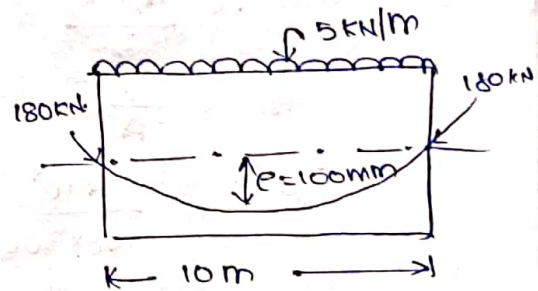 5 KN/m
180KN
180KN
e=100mm
10m